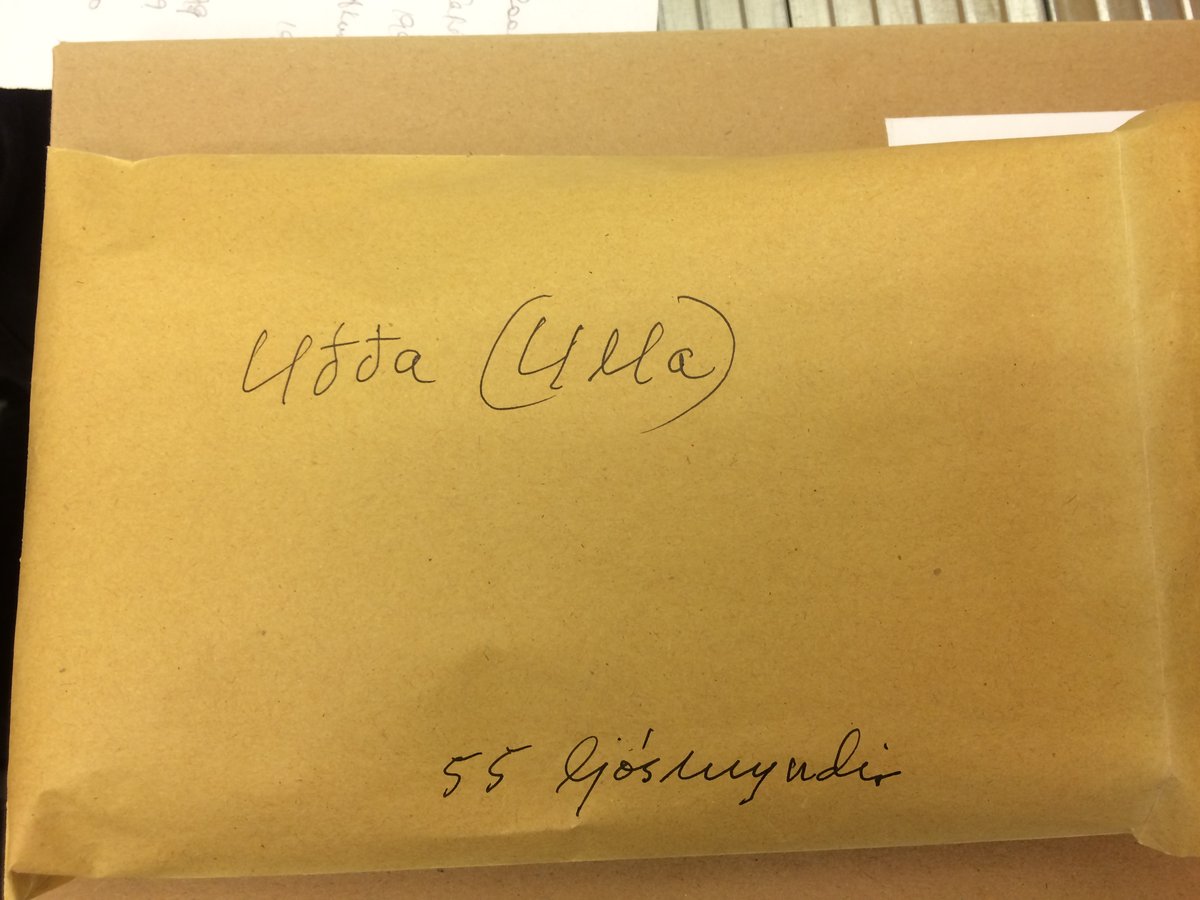 Uðða (Ulla)
55 ljósmyndir